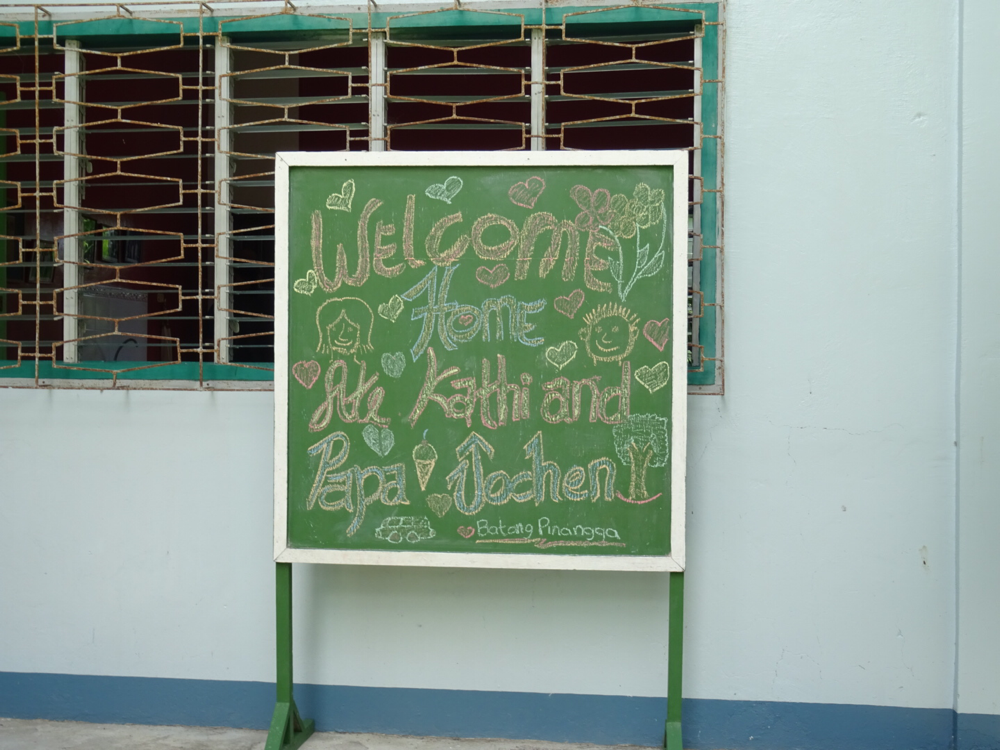 Welcome
Home
Ate Kathi and
Papa Jochen
Batang Pinangga